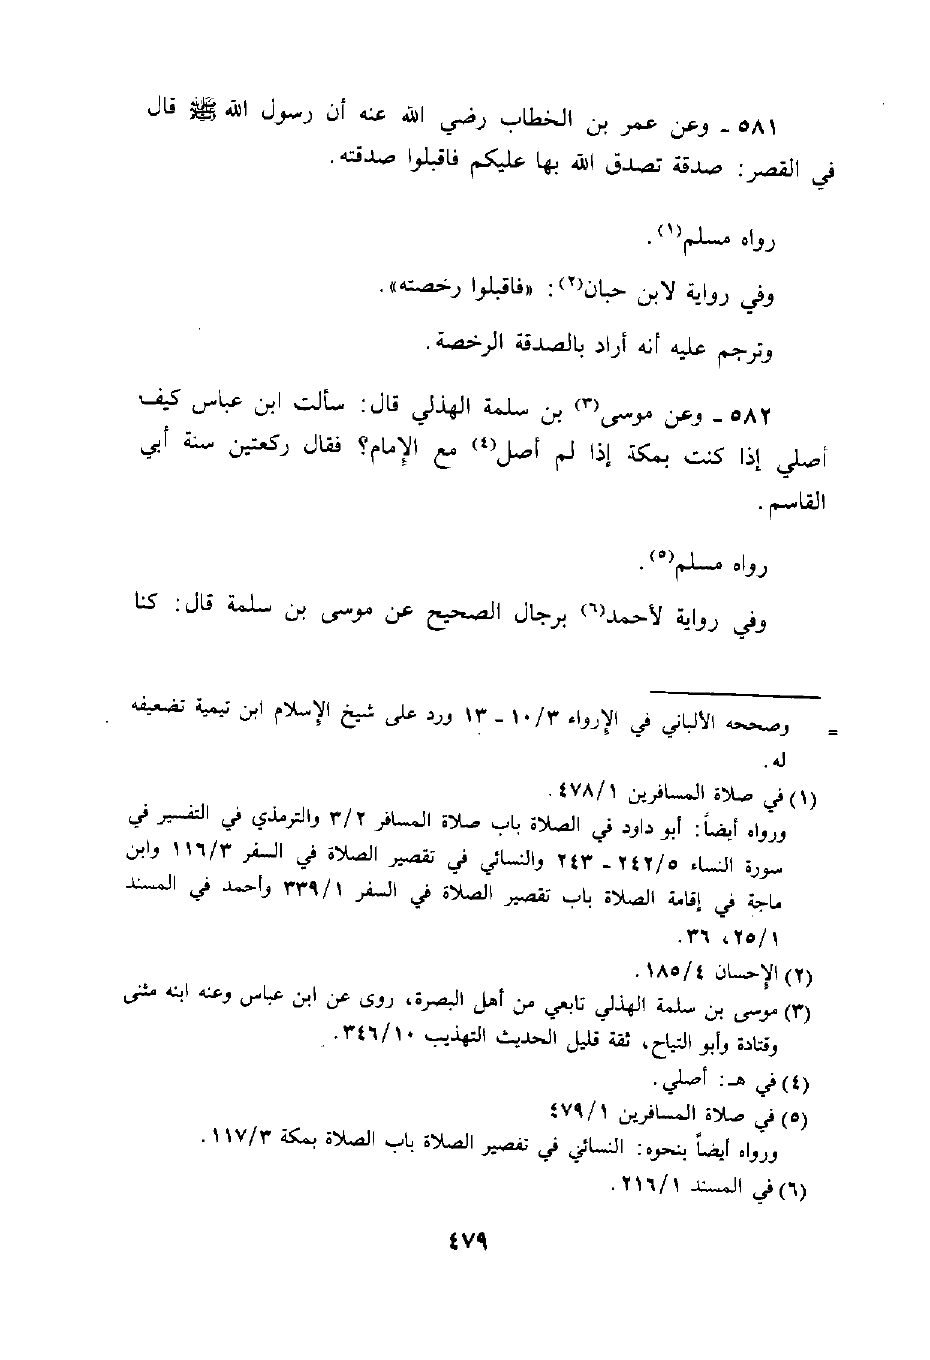 ٥٨١ ـ وعن عمر بن الخطاب رضي الله عنه أن رسول الله ﷺ قال
في القصر: صدقة تصدق الله بها عليكم فاقبلوا صدقته.
رواه مسلم(١).
وفي رواية لابن حبان(٢): «فاقبلوا رخصته».
وترجم عليه أنه أراد بالصدقة الرخصة.
٥٨٢ ـ وعن موسى(٣) بن سلمة الهذلي قال: سألت ابن عباس كيف
أصلي إذا كنت بمكة إذا لم أصل(٤) مع الإمام؟ فقال ركعتين سنة أبي
القاسم.
رواه مسلم(٥).
وفي رواية لأحمد(٦) برجال الصحيح عن موسى بن سلمة قال: كنا
= وصححه الألباني في الإرواء ١٠/٣ ـ ١٣ ورد على شيخ الإسلام ابن تيمية تضعيفه
له.
(١) في صلاة المسافرين ٤٧٨/١.
ورواه أيضاً: أبو داود في الصلاة باب صلاة المسافر ٣/٢ والترمذي في التفسير في
سورة النساء ٢٤٢/٥ ـ ٢٤٣ والنسائي في تقصير الصلاة في السفر ١١٦/٣ وابن
ماجة في إقامة الصلاة باب تقصير الصلاة في السفر ٣٣٩/١ وأحمد في المسند
٢٥/١، ٣٦.
(٢) الإحسان ١٨٥/٤.
(٣) موسى بن سلمة الهذلي تابعي من أهل البصرة، روى عن ابن عباس وعنه ابنه مثنى
وقتادة وأبو التياح، ثقة قليل الحديث التهذيب ٣٤٦/١٠.
(٤) في هـ: أصلي.
(٥) في صلاة المسافرين ٤٧٩/١
ورواه أيضاً بنحوه: النسائي في تقصير الصلاة باب الصلاة بمكة ١١٧/٣.
(٦) في المسند ٢١٦/١.
٤٧٩